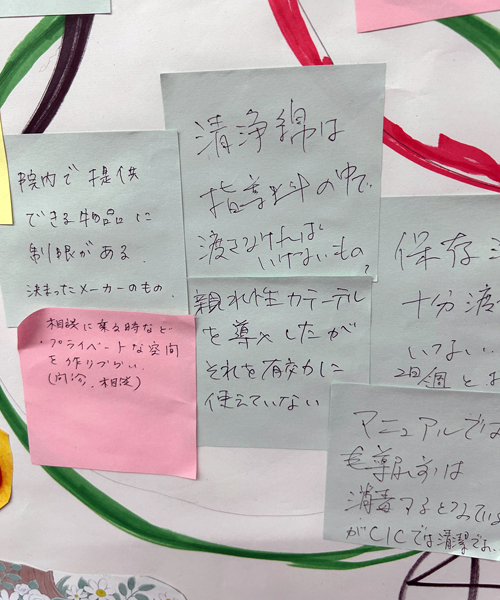 清浄綿は
指導料の中で
渡さなければ
いけないもの?
院内で提供
できる物品に
制限がある.
決まったメーカーのもの.
相談に乗る時など
・プライベートな空間
を作りづらい
(問診、相談)
親水性カテーテル
を導入したが
それを有効に
使えていない
保存
十分渡
いない
マニュアルでは
導尿前は
消毒するとなっている
がCICでは清潔でよい